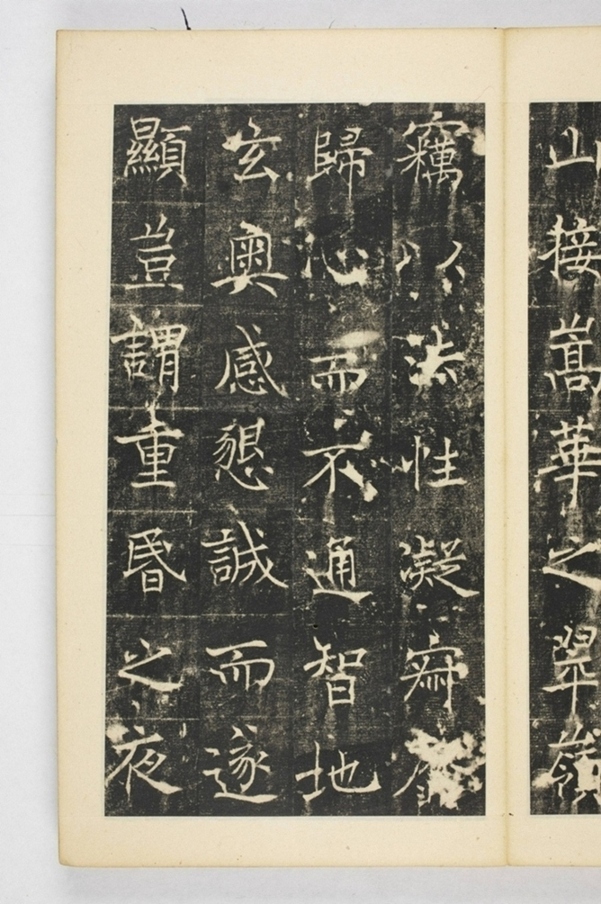 山接嵩華之翠嶺
竊以法性凝㝠靡
歸心而不通智地
玄奥感懇誠而遂
顯豈謂重昏之夜